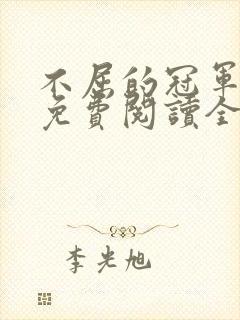 不屈的冠軍
免費閱讀全
李光旭